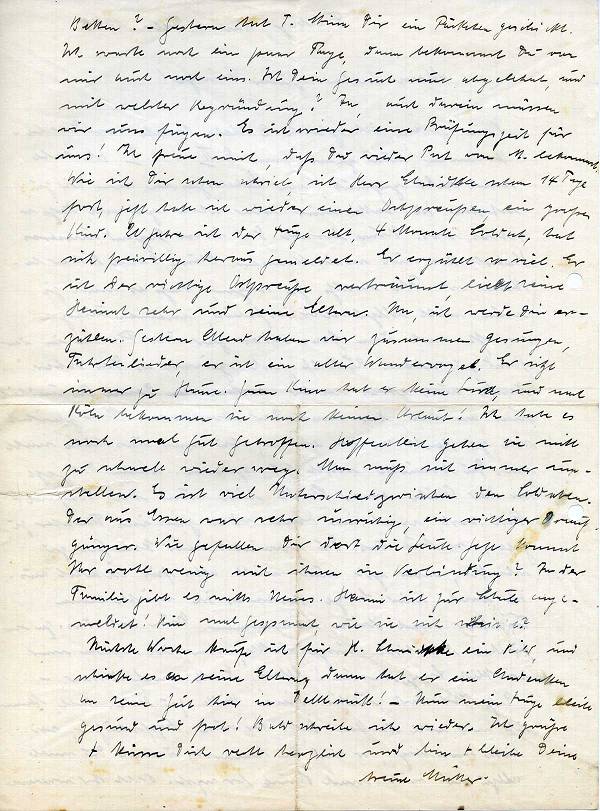 Betten? – Gestern hat T. Mina Dir ein Päckchen geschickt.
Ich warte noch ein paar Tage, dann bekommst Du von
mir auch noch eins. Ist Dein Gesuch nun abgelehnt, und
mit welcher Begründung? Ja, auch darein müssen
wir uns fügen. Es ist wieder eine Prüfungszeit für
uns! Ich freue mich, daß Du wieder Post von M. bekommst.
Wie ich Dir schon schrieb, ist Herr schon 14 Tage
fort, jetzt habe ich wieder einen Ostpreußen ein großes
Kind. Jahre ist der Junge alt, 4 Monate Soldat, hat
sich freiwillig heraus gemeldet. Er erzählt so viel. Er
ist der richtige Ostpreuße verträumt, liebt seine
Heimat sehr und seine Eltern. Na, ich werde Dir er-
zählen. Gestern Abend haben wir zusammen gesungen,
Fahrtenlieder, er ist ein alter Wandervogel. Er sitzt
immer zu Hause. Zum Kino hat er keine Lust, und nach
Köln bekommen sie noch keinen Urlaub! Ich habe es
noch mal gut getroffen. Hoffentlich gehen sie nicht
zu schnell wieder weg. Man muß sich immer um-
stellen. Es ist viel Unterschied zwischen den Soldaten.
Der aus Essen war sehr unruhig, ein richtiger Drauf-
gänger. Wie gefallen Dir dort die Leute jetzt kommt
Ihr wohl wenig mit ihnen in Verbindung? In der
Familie gibt es nichts Neues. ist zur Schule ange-
meldet! Bin mal gespannt, wie sie sich
Nächste Woche kaufe ich für H. ein Bild, und
schicke es an seine Eltern, dann hat er ein Andenken
an seine Zeit hier in Dellbrück! – Nun mein Junge bleibe
gesund und froh! Bald schreibe ich wieder. Ich grüße
+ küsse Dich recht herzlich und bin + bleibe Deine
treue Mutter.